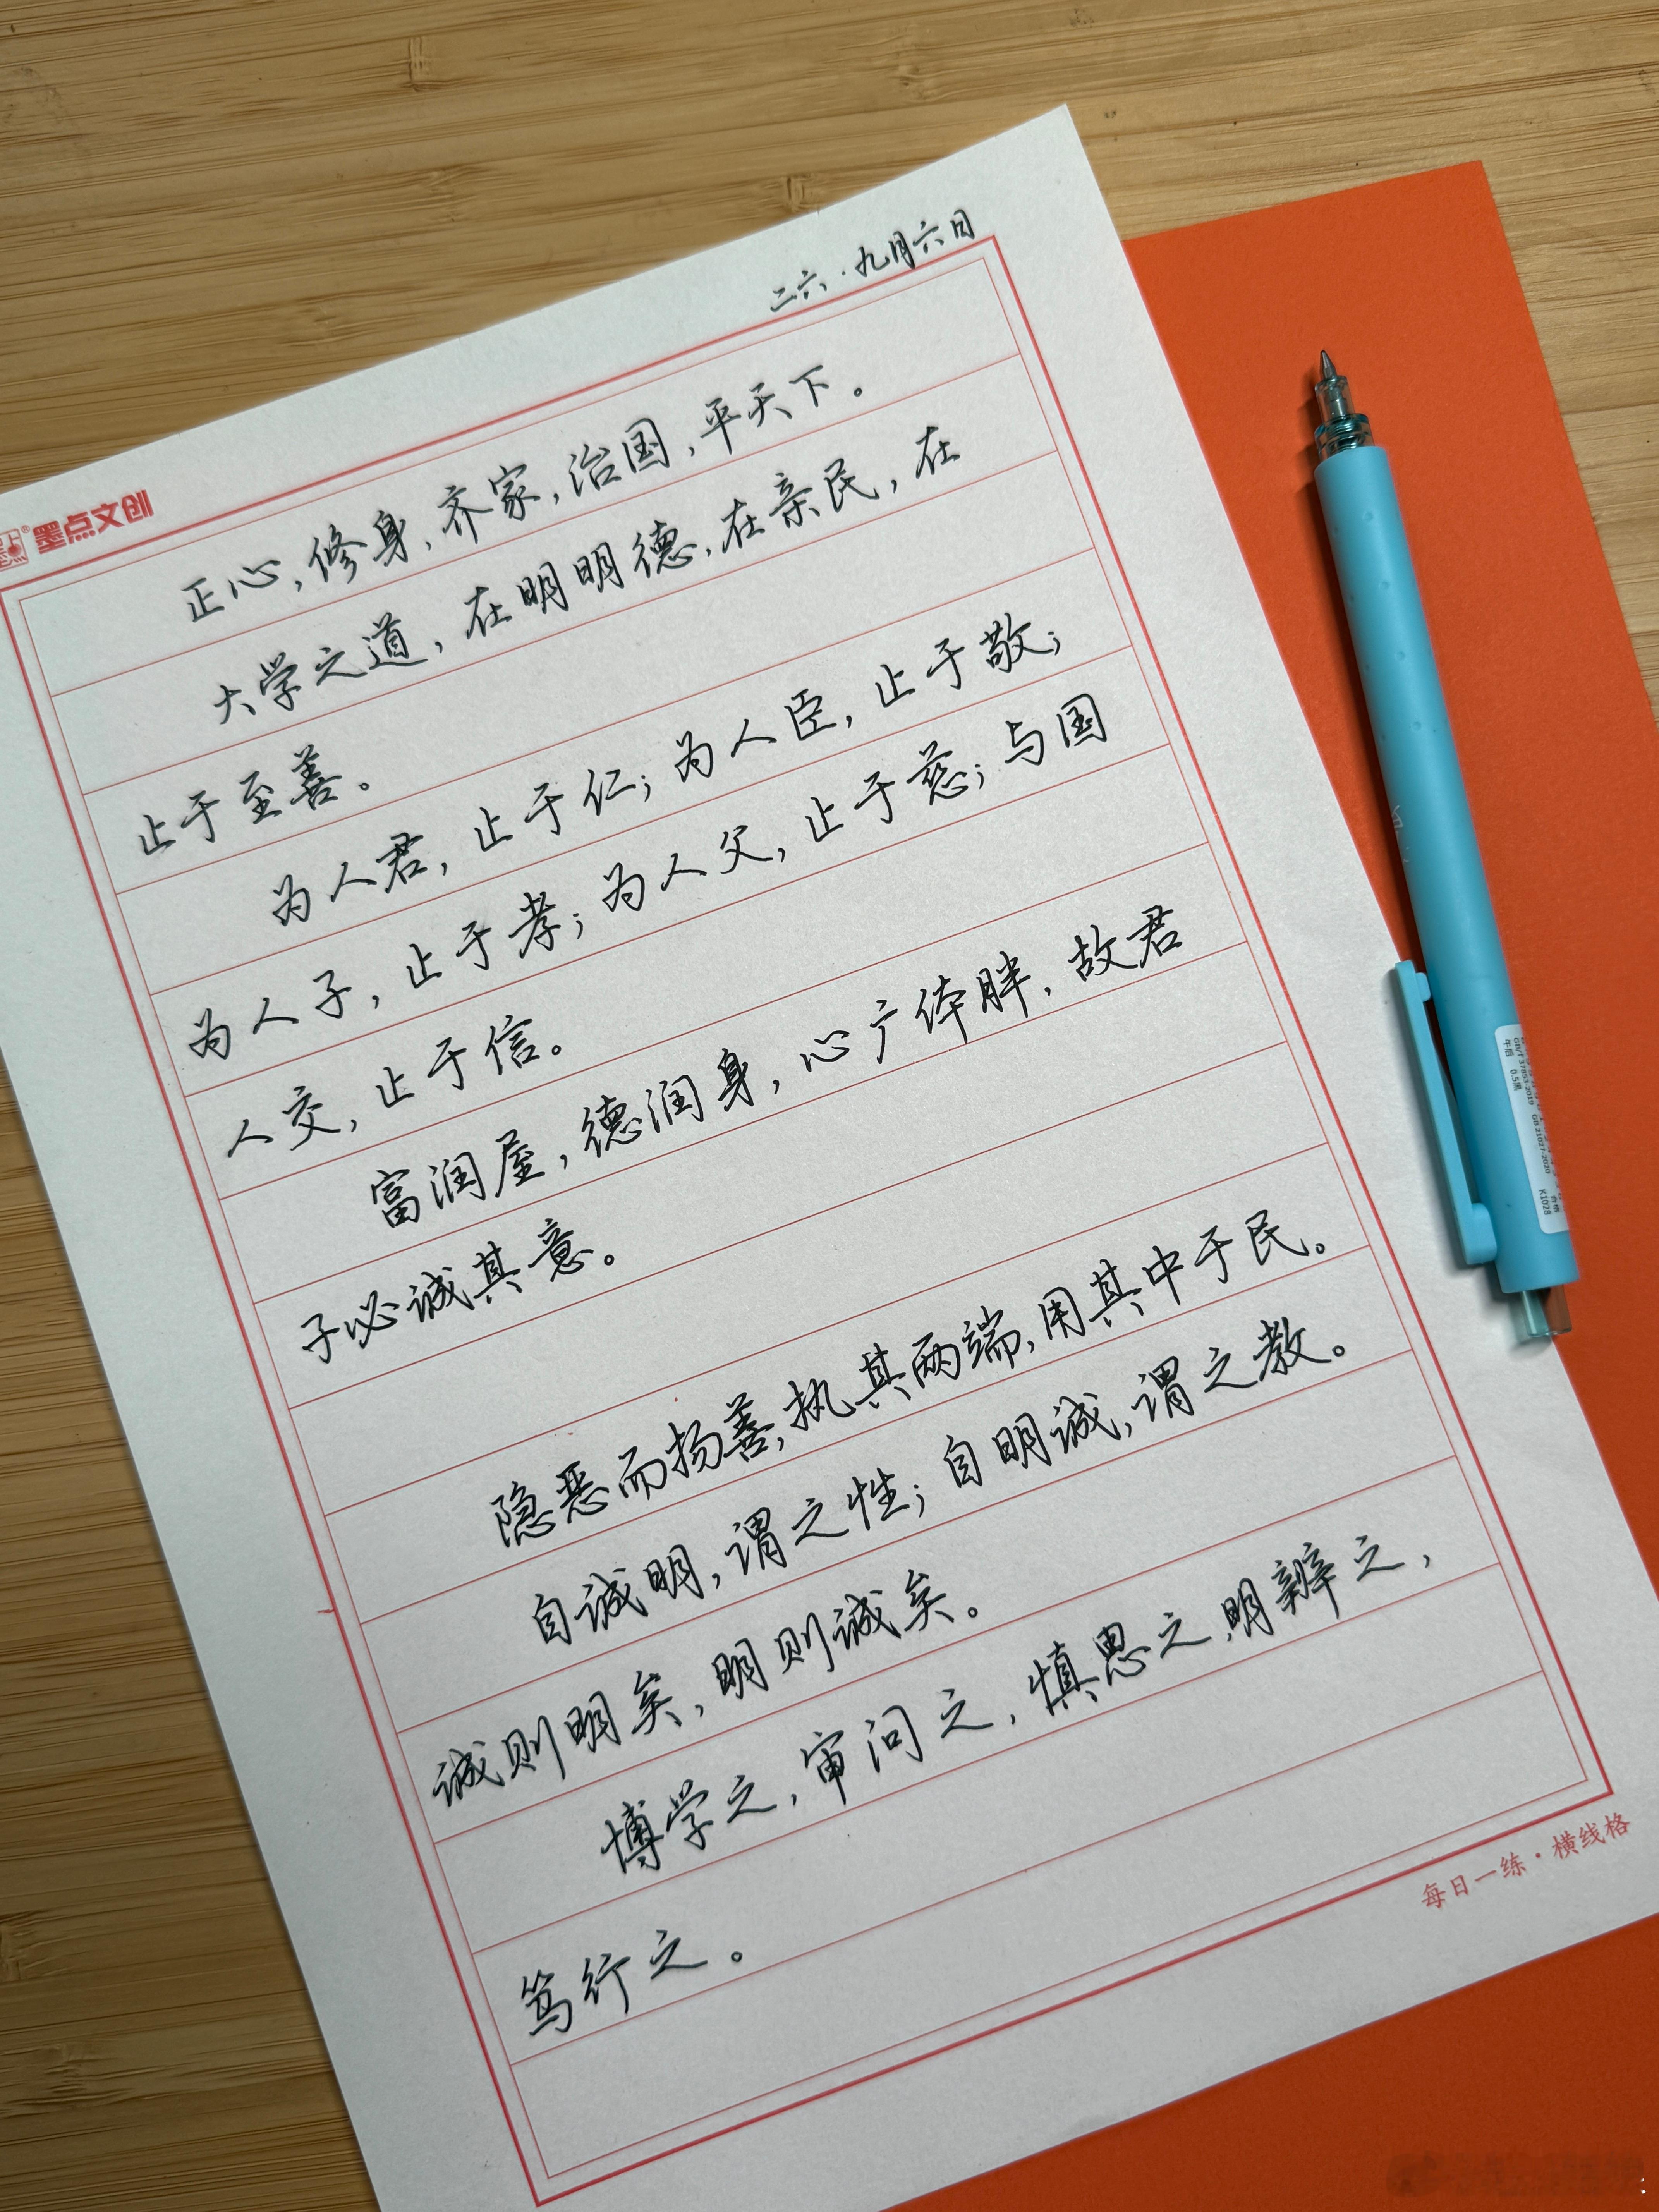 二六.九月六日
墨点文创
正心,修身,齐家,治国,平天下。
大学之道,在明明德,在亲民,在
止于至善。
为人君,止于仁;为人臣,止于敬;
为人子,止于孝;为人父,止于慈;与国
人交,止于信。
富润屋,德润身,心广体胖,故君
子必诚其意。
隐恶而扬善,执其两端,用其中于民。
自诚明,谓之性;自明诚,谓之教。
诚则明矣,明则诚矣。
博学之,审问之,慎思之,明辨之,
笃行之。
每日一练·横线格
GB/T 37853-2019 GB 21027-2020 合格
午后 0.5黑 K1028